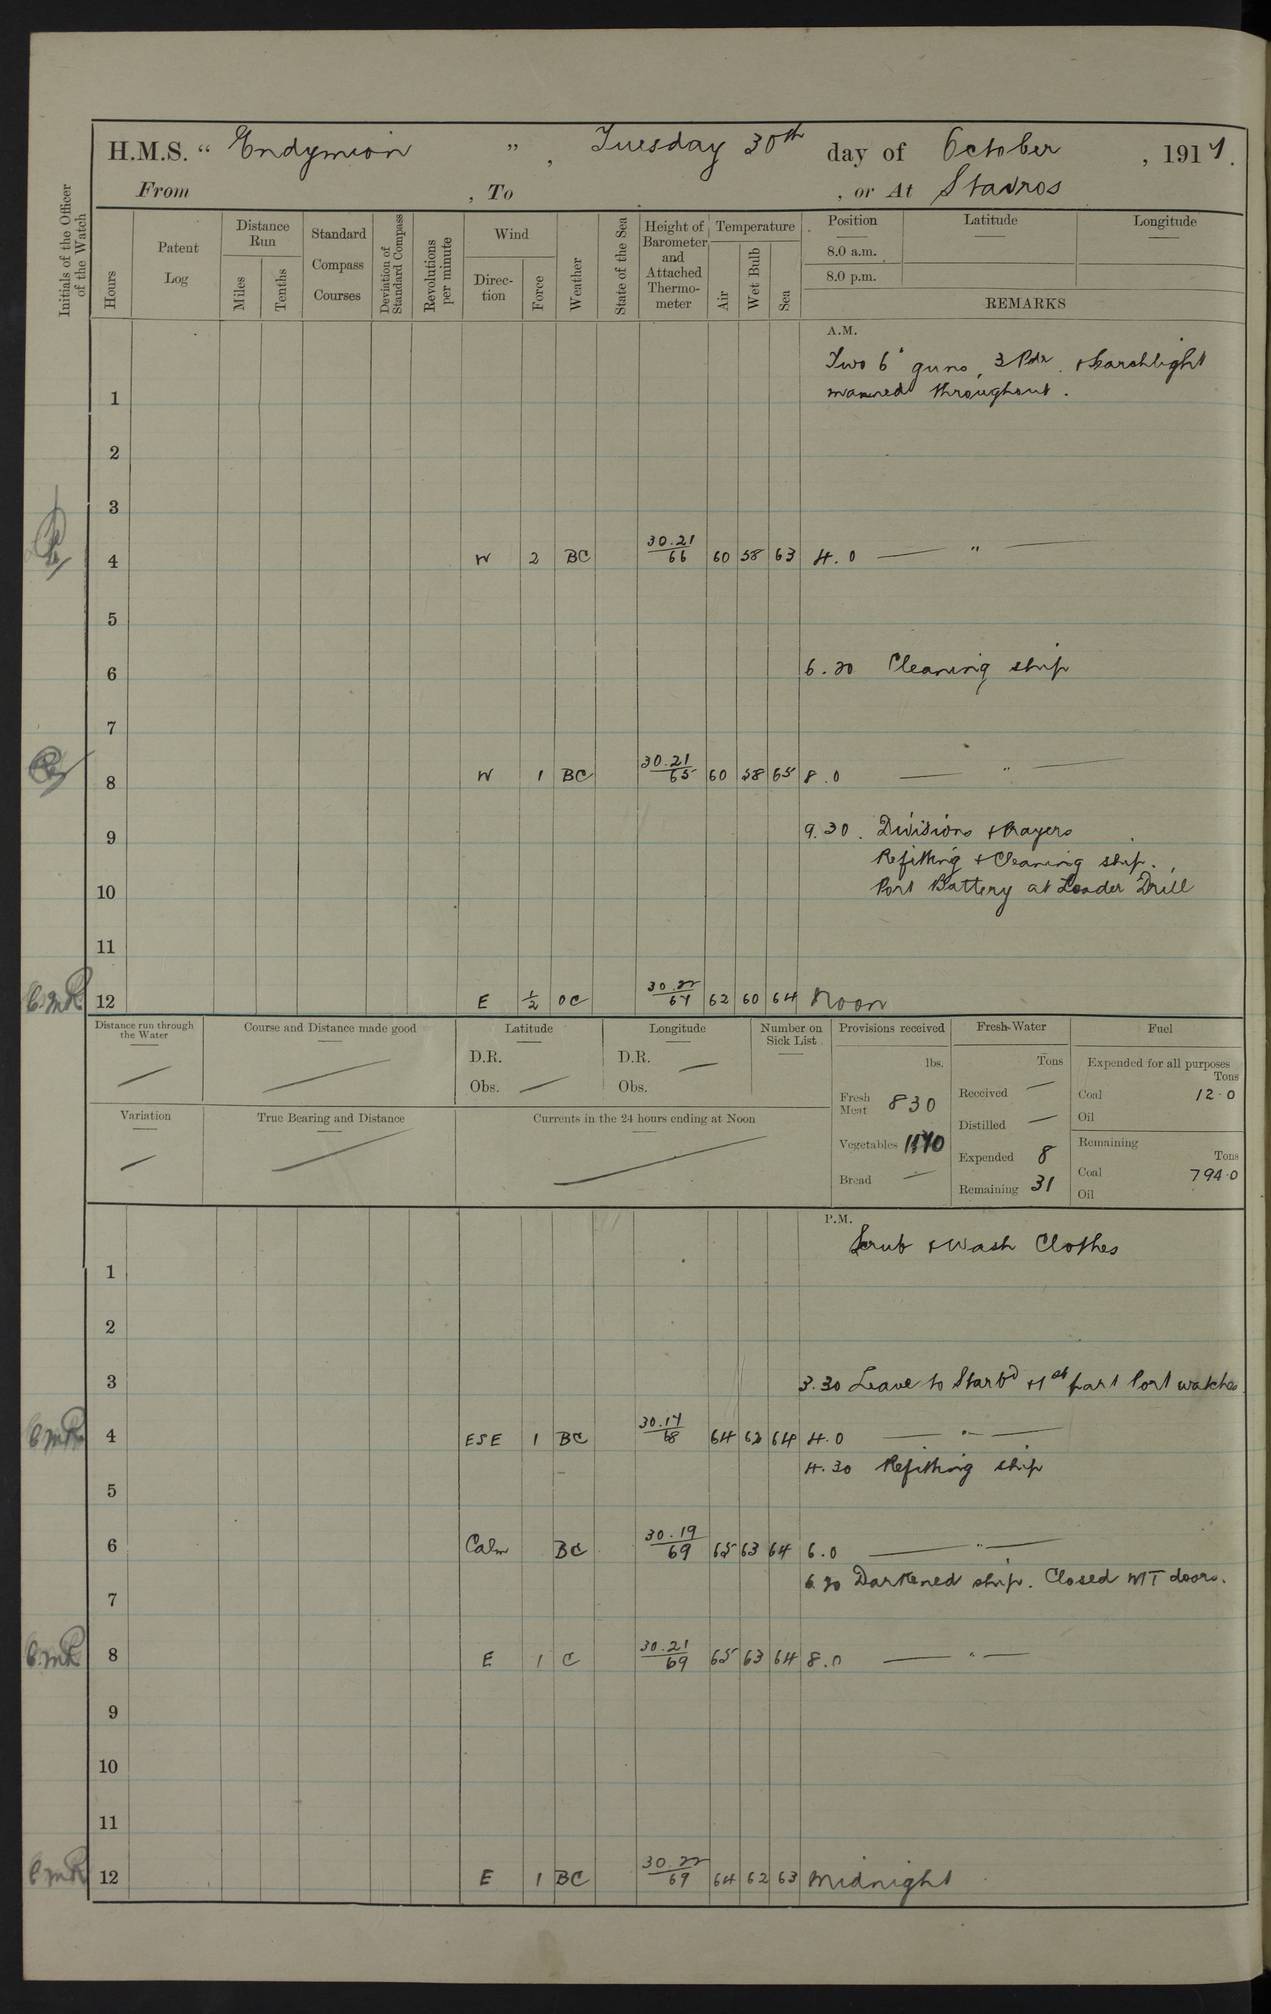 H.M.S. “ Endymion ” , Tuesday 30th day of October , 1917.
From , To , or At Stavros
Initials of the Officer of the Watch
Hours
Patent Log
Distance Run
Miles
Tenths
Standard Compass Courses
Deviation of Standard Compass
Revolutions per minute
Wind
Direc-tion
Force
Weather
State of the Sea
Height of Barometer and Attached Thermo-meter
Temperature
Air
Wet Bulb
Sea
Position
Latitude
Longitude
8.0 a.m.
8.0 p.m.
REMARKS
A.M.
Two 6" guns, 3 Pdr. & Searchlight
1 manned throughout.
2
3
4 W 2 BC 30.21/66 60 58 63 4.0 — " —
5
6 6.20 Cleaning ship
7
8 W 1 BC 30.21/65 60 58 65 8.0 — " —
9 9.30. Divisions & Prayers
Refitting & Cleaning ship.
10 Port Battery at Loader Drill
11
C.M.R. 12 E ½ OC 30.22/67 62 60 64 Noon
Distance run through the Water
Course and Distance made good
Latitude
D.R.
Obs. —
Longitude
D.R. —
Obs.
Number on Sick List
Provisions received
lbs.
Fresh Meat 830
Vegetables
Bread —
Fresh Water
Tons
Received —
Distilled —
Expended 8
Remaining 31
Fuel
Expended for all purposes
Tons
Coal 12.0
Oil
Remaining
Tons
Coal 794.0
Oil
Variation
True Bearing and Distance
Currents in the 24 hours ending at Noon
P.M.
Scrub & Wash Clothes
1
2
3 3.30 Leave to Starbd & 1st part Port watches
C.M.R. 4 ESE 1 BC 30.17/68 64 62 64 4.0 — " —
4.30 Refitting ship
5
6 Calm BC 30.19/69 65 63 64 6.0 — " —
6.20 Darkened ship. Closed WT doors.
7
C.M.R. 8 E 1 C 30.21/69 65 63 64 8.0 — " —
9
10
11
C.M.R. 12 E 1 BC 30.22/69 64 62 63 Midnight